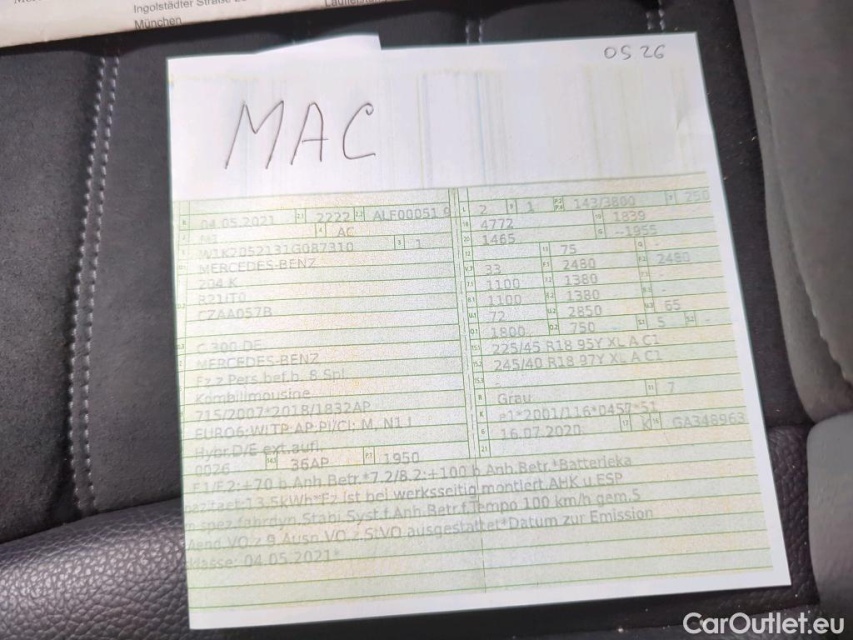 Ingolstädter Straße
München
OS 26
MAC
04.05.2021 2222 ALF00051 9
M1 AC
W1K2052131G087310 1
MERCEDES-BENZ
204 K
R21IT0
CZAA057B
C 300 DE
MERCEDES-BENZ
Fz.z.Pers.bef.b. 8 Spl.
Kombilimousine
715/2007*2018/1832AP
EURO6;WLTP;AP;PI/CI; M, N1 I
Hybr.D/E ext.aufl.
0026 36AP 1950
2 1 143/3800 250
4772 1839
1465 --1955
75 -
33 2480 2480
1100 1380 -
1100 1380 -
72 2850 65
1800 750 5 -
225/45 R18 95Y XL A C1
245/40 R18 97Y XL A C1
-
Grau 7
e1*2001/116*0457*51
16.07.2020 K GA348963
F.1/F.2:+70 b.Anh.Betr.*7.2/8.2:+100 b.Anh.Betr.*Batterieka
paz.tach*13,5kWh*Fz.ist bei werksseitig montiert.AHK u.ESP
m.spez.fahrdyn.Stabi.Syst.f.Anh.Betr.f.Tempo 100 km/h gem.5
Aend.VO z.9.Ausn.VO z.StVO ausgestattet*Datum zur Emission
klasse: 04.05.2021*
CarOutlet.eu